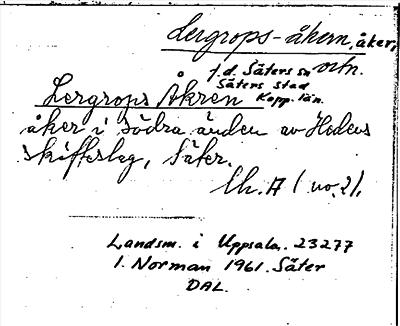 Lergrops-åkern, åker,
ortn.
f.d. Säters sn
Säters stad
Lergrops Åkren Kopp. län.
åker i södra änden av Hedens
skifteslag, Säter.
Lh. A (no. 2).
Landsm. i Uppsala. 23277
I. Norman 1961. Säter
DAL.